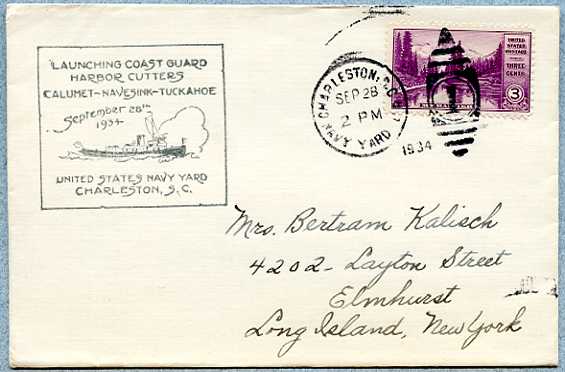 LAUNCHING COAST GUARD
HARBOR CUTTERS
CALUMET-NAVESINK-TUCKAHOE
September 28th
1934
UNITED STATES NAVY YARD
CHARLESTON, S.C.
CHARLESTON, S.C.
SEP 28
2 PM
NAVY YARD
1934
1
UNITED
STATES
POSTAGE
THREE
CENTS
3
Mrs. Bertram Kalisch
4202- Layton Street
Elmhurst
Long Island, New York